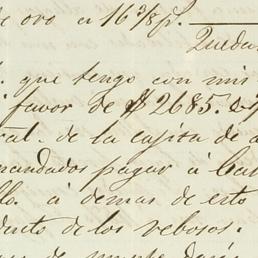 de oro a 16 3/8 p%.
Quedan
que tengo con mis
favor de $2685.
ral. de la cajita de a
mandados pagar á Cat
llo. á demas de esto
ducto de los rebosos.